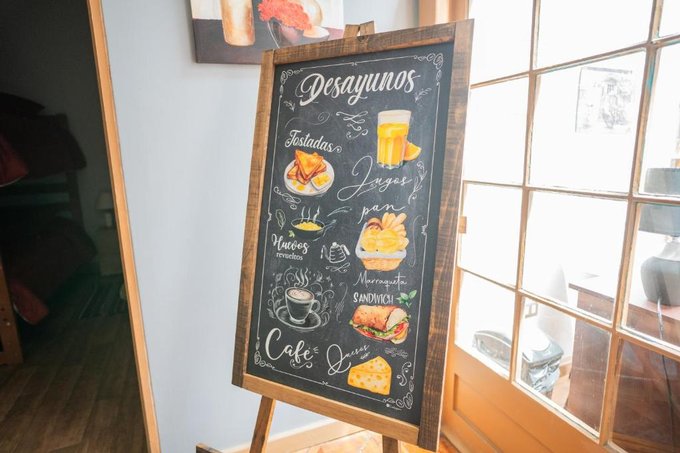 Desayunos
Tostadas
Jugos
pan
Huevos
revueltos
Marraqueta
SANDWICH
Café
Quesos